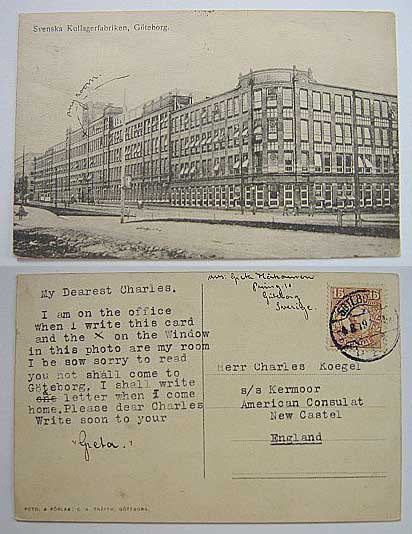 Svenska Kullagerfabriken, Göteborg.
my room
My Dearest Charles.
I am on the office
when I write this card
and the X on the Window
in this photo are my room
I be sow sorry to read
you not shall come to
Göteborg. I shall write
one letter when I come
home.Please dear Charles
Write soon to your
"Greta."
FOTO. & FÖRLAG: C. A. TRÄFFH, GÖTEBORG.
avs: Greta
Göteborg
Sverige.
15 15
Herr Charles Koegel
s/s Kermoor
American Consulat
New Castel
England